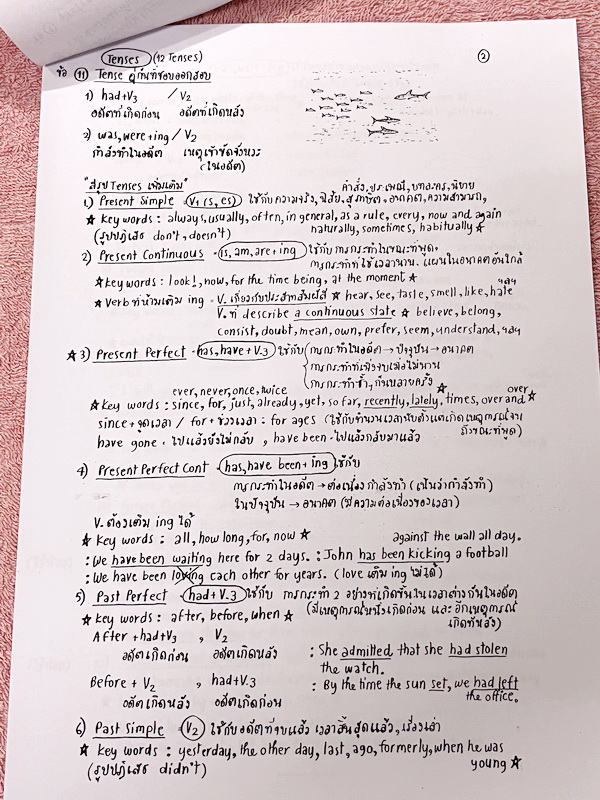 Tenses (12 Tenses)
②
ข้อ ⑪ Tense คู่กันที่ชอบออกสอบ
1) had+V3 / V2
อดีตที่เกิดก่อน อดีตที่เกิดหลัง
2) was, were+ing / V2
กำลังทำในอดีต เหตุเข้าขัดจังหวะ
(ในอดีต)
"สรุป Tenses เพิ่มเติม"
คำสั่ง, ประเพณี, บทละคร, นิยาย
1) Present Simple - V1 (s, es) ใช้กับความจริง, นิสัย, สุภาษิต, อนาคต, ความสามารถ,
☆ Key words : always, usually, often, in general, as a rule, every, now and again
(รูปปฏิเสธ don't, doesn't) naturally, sometimes, habitually ☆
2) Present Continuous - is, am, are + ing ใช้กับการกระทำในขณะที่พูด,
การกระทำที่ใช้เวลานาน, แผนในอนาคตอันใกล้
☆ Key words : look!, now, for the time being, at the moment ☆
☆ Verb ที่ห้ามเติม ing - V. เกี่ยวกับประสาทสัมผัส ☆ hear, see, taste, smell, like, hate ฯลฯ
V. ที่ describe a continuous state ☆ believe, belong,
consist, doubt, mean, own, prefer, seem, understand, ฯลฯ
☆ 3) Present Perfect - has, have + V.3 ใช้กับ การกระทำในอดีต → ปัจจุบัน → อนาคต
การกระทำที่เพิ่งจบเมื่อไม่นาน
การกระทำซ้ำๆกันหลายครั้ง
ever, never, once, twice
☆ Key words : since, for, just, already, yet, so far, recently, lately, times, over and over ☆
since + จุดเวลา / for + ช่วงเวลา : for ages (ใช้กับจำนวนเวลานับตั้งแต่เกิดเหตุการณ์จน
ถึงขณะที่พูด)
have gone - ไปแล้วยังไม่กลับ , have been - ไปแล้วกลับมาแล้ว
4) Present Perfect Cont - has, have been + ing ใช้กับ
การกระทำในอดีต → ต่อเนื่อง กำลังทำ (เน้นว่ากำลังทำ)
ในปัจจุบัน → อนาคต (มีความต่อเนื่องของเวลา)
V. ต้องเติม ing ได้
☆ Key words : all, how long, for, now ☆ against the wall all day.
: We have been waiting here for 2 days. : John has been kicking a football
: We have been loving each other for years. (love เติม ing ไม่ได้)
5) Past Perfect - had + V.3 ใช้กับ การกระทำ 2 อย่างที่เกิดขึ้นในเวลาต่างกันในอดีต
☆ Key words : after, before, when ☆ (มีเหตุการณ์หนึ่งเกิดก่อน และอีกเหตุการณ์
เกิดทีหลัง)
After + had + V3 , V2
อดีตเกิดก่อน อดีตเกิดหลัง : She admitted that she had stolen
the watch.
Before + V2 , had + V.3 : By the time the sun set, we had left
อดีตเกิดหลัง อดีตเกิดก่อน the office.
6) Past Simple - V2 ใช้กับอดีตที่จบแล้ว เวลาสิ้นสุดแล้ว, เรื่องเล่า
☆ Key words : yesterday, the other day, last, ago, formerly, when he was
(รูปปฏิเสธ didn't) young ☆